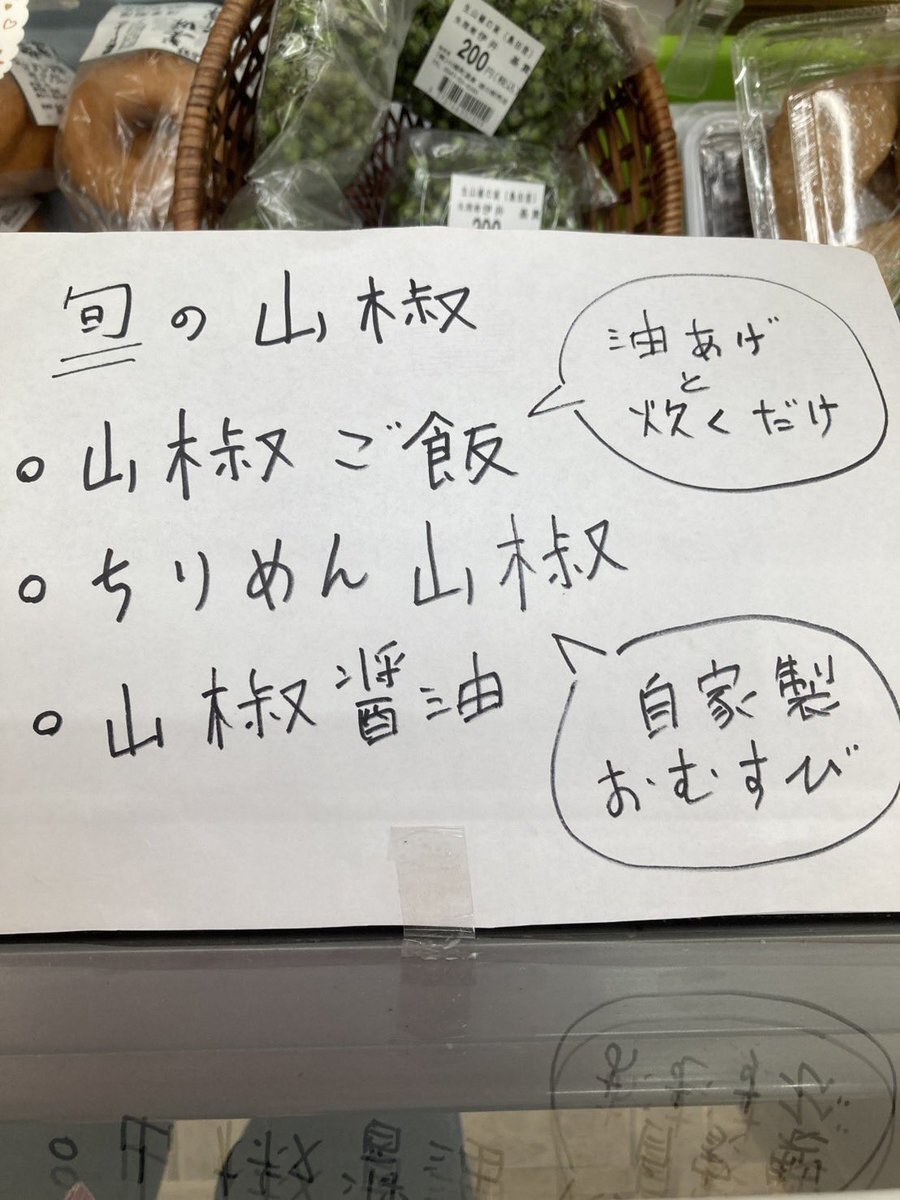 200円(税込)
200
旬の山椒
油あげ
と
炊くだけ
○山椒ご飯
○ちりめん山椒
○山椒醤油
自家製
おむすび